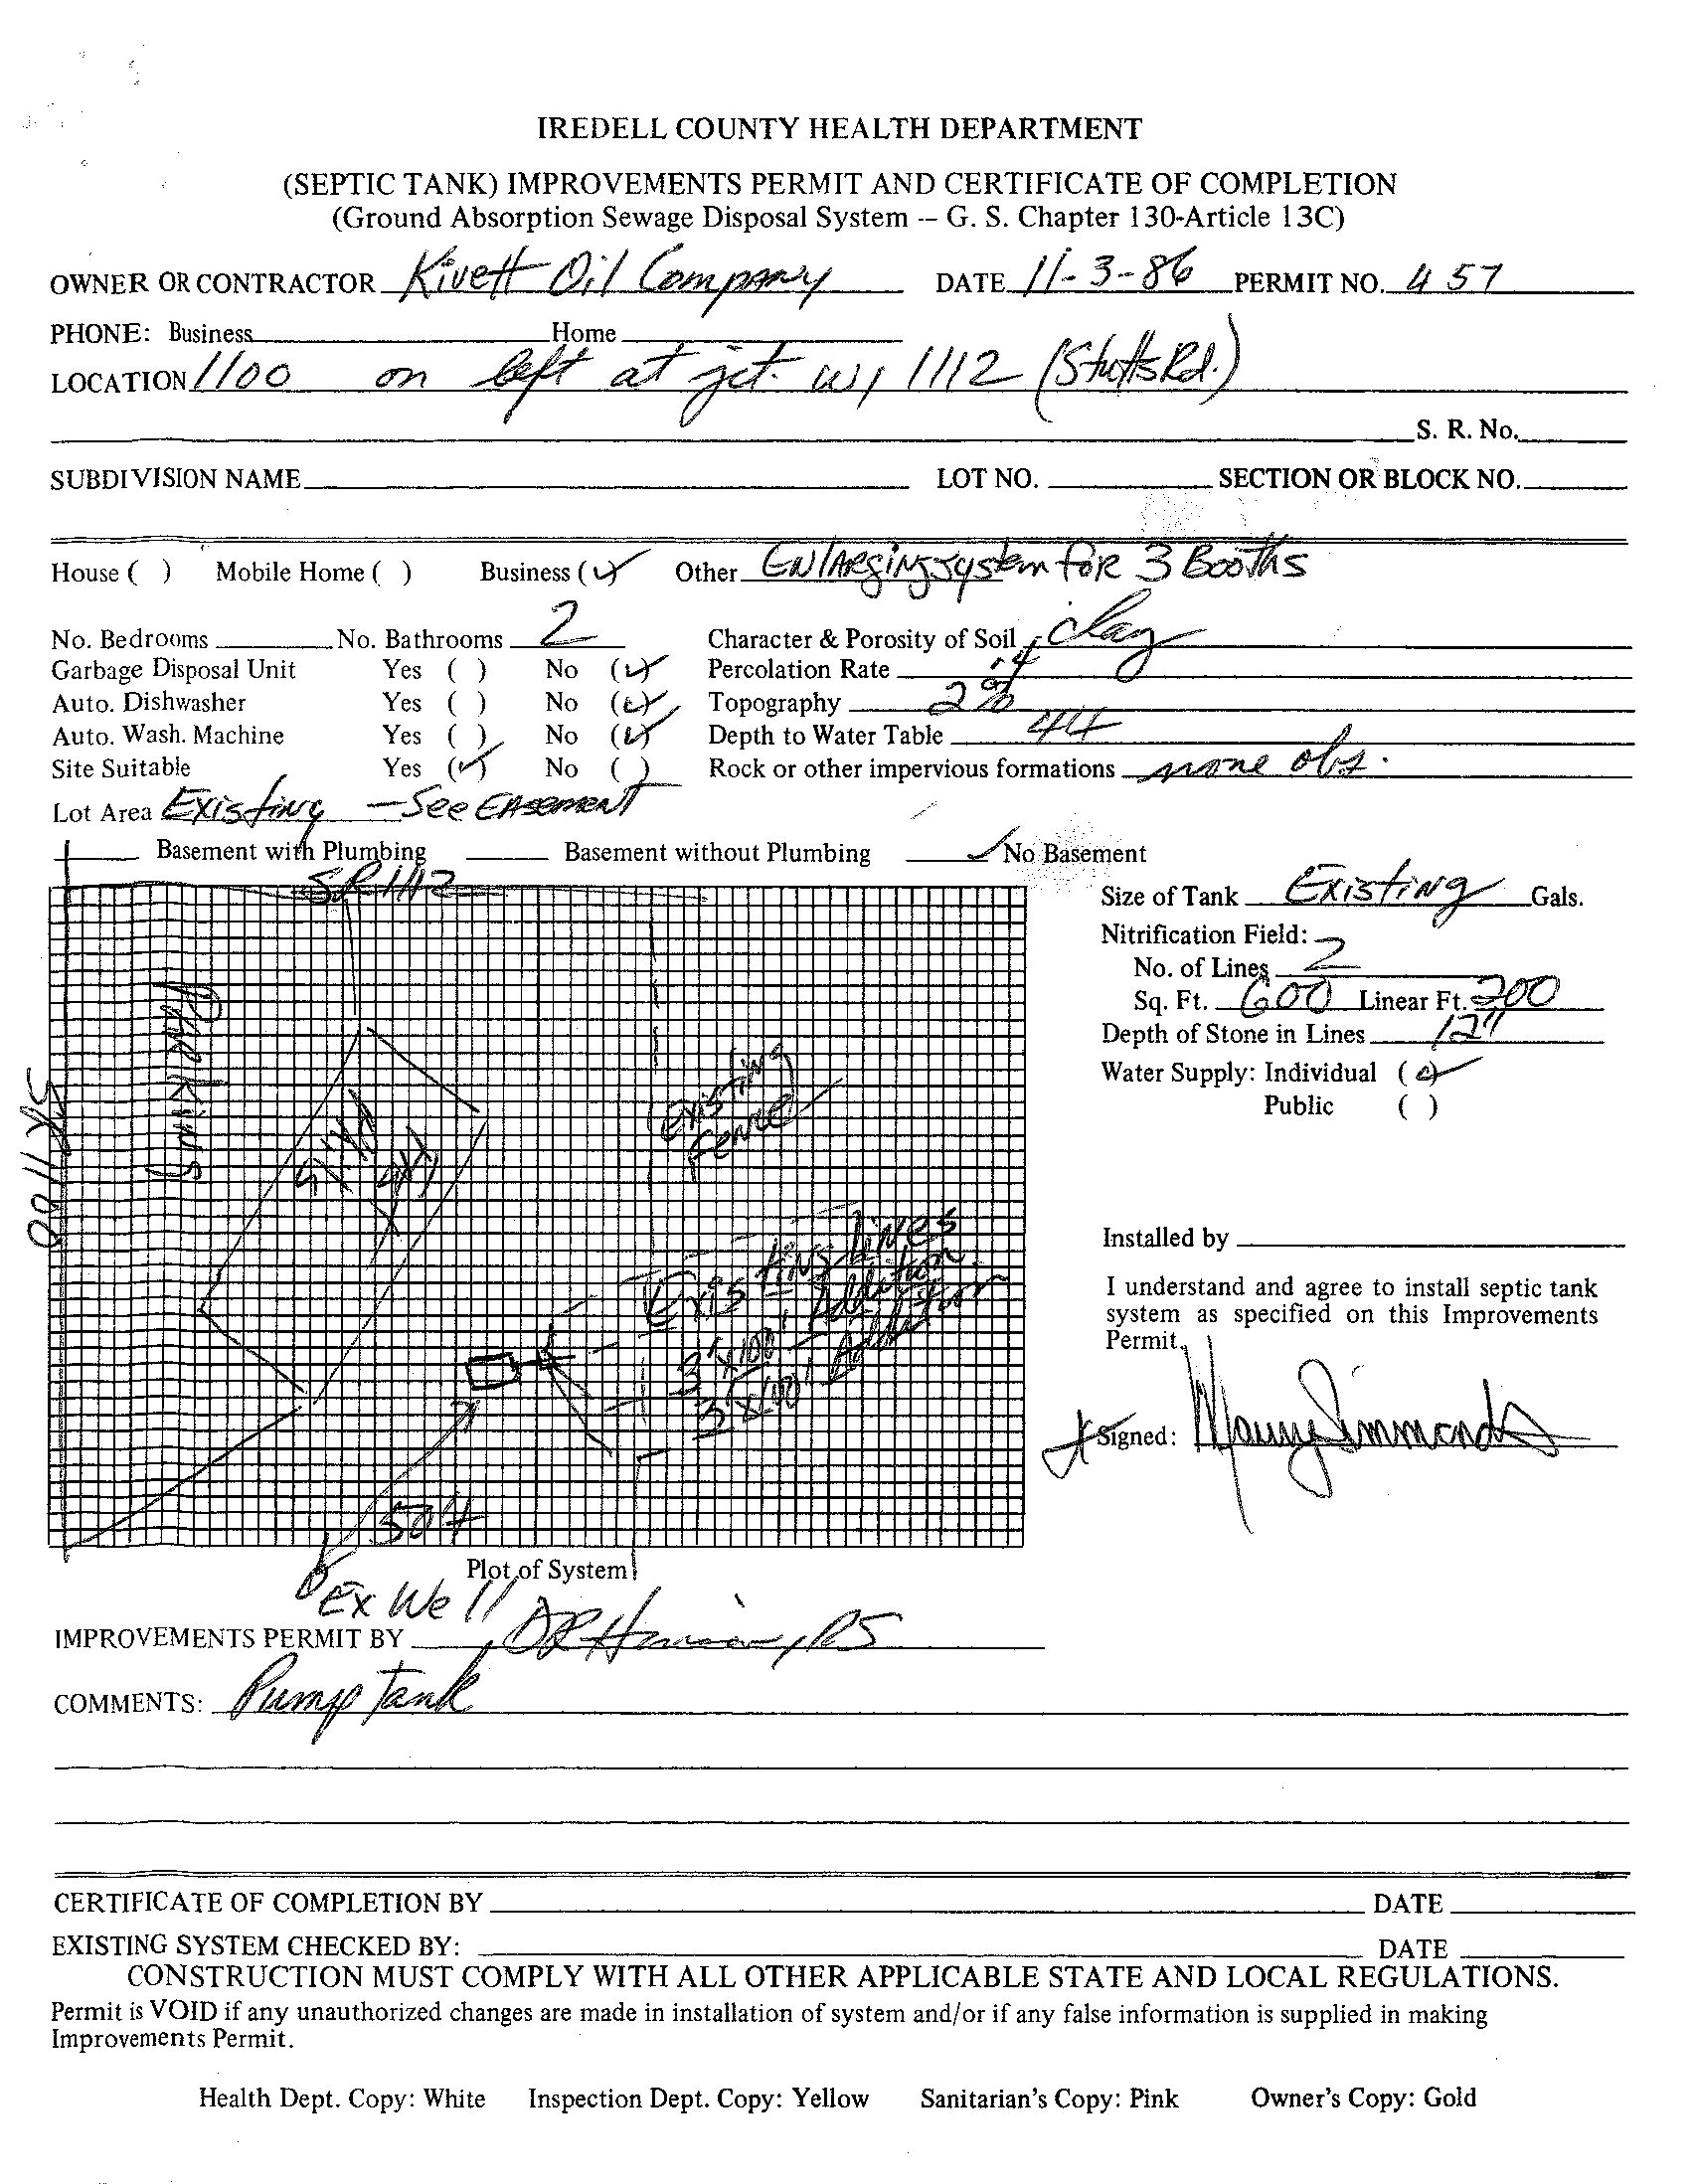 IREDELL COUNTY HEALTH DEPARTMENT
(SEPTIC TANK) IMPROVEMENTS PERMIT AND CERTIFICATE OF COMPLETION
(Ground Absorption Sewage Disposal System -- G. S. Chapter 130-Article 13C)
OWNER OR CONTRACTOR Kivett Oil Company DATE 11-3-86 PERMIT NO. 457
PHONE: Business Home
LOCATION 1100 on left at jct. w/ 1112 (Stutts Rd.)
S. R. No.
SUBDIVISION NAME LOT NO. SECTION OR BLOCK NO.
House ( ) Mobile Home ( ) Business (✓) Other Enlarging system for 3 Booths
No. Bedrooms No. Bathrooms 2 Character & Porosity of Soil clay
Garbage Disposal Unit Yes ( ) No (✓) Percolation Rate .4
Auto. Dishwasher Yes ( ) No (✓) Topography 2%
Auto. Wash. Machine Yes ( ) No (✓) Depth to Water Table
Site Suitable Yes (✓) No ( ) Rock or other impervious formations none obs.
Lot Area Existing - See Easement
Basement with Plumbing Basement without Plumbing ✓ No Basement
SR 1112
Size of Tank Existing Gals.
Nitrification Field:
No. of Lines 2
Sq. Ft. 600 Linear Ft. 200
Depth of Stone in Lines 12"
Water Supply: Individual (✓)
Public ( )
Parking
SR 1100
Existing
Fence
Existing Lines
3'x100' Addition
3'x100' Addition
50'+
Installed by
I understand and agree to install septic tank
system as specified on this Improvements
Permit.
Signed:
Plot of System
Ex Well
IMPROVEMENTS PERMIT BY
COMMENTS: Pump Tank
CERTIFICATE OF COMPLETION BY DATE
EXISTING SYSTEM CHECKED BY: DATE
CONSTRUCTION MUST COMPLY WITH ALL OTHER APPLICABLE STATE AND LOCAL REGULATIONS.
Permit is VOID if any unauthorized changes are made in installation of system and/or if any false information is supplied in making
Improvements Permit.
Health Dept. Copy: White Inspection Dept. Copy: Yellow Sanitarian's Copy: Pink Owner's Copy: Gold